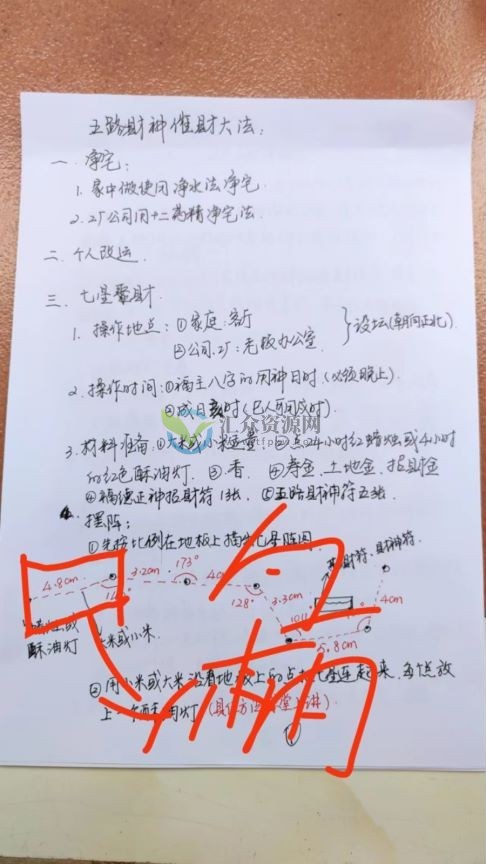 五路财神催财大法:
一. 净宅:
1. 家中做使用净水法净宅.
2. 工厂公司用十二药精净宅法.
二. 个人改运.
三. 七星聚财.
1. 操作地点: ①家庭: 客厅
②公司.工厂: 老板办公室.
}设坛(朝向正北).
2. 操作时间: ①福主八字的用神日时(必须晚上)
②成日亥时
3. 材料准备: ①大米或小米适量. ②点24小时红蜡烛或4小时
的红色酥油灯. ③.香. ④寿金.土地金.
④福德正神招财符1张. ⑤五路财神符五张.
4. 摆阵:
①先按比例在地板上描
4.8cm
3.2cm
173°
128°
3.3cm
4cm
5.8cm
财符.财神符.
酥油灯
大米或小米.
②用小米或大米沿着地板上的点把七星连起来.每个点放
上一个
汇众资源网